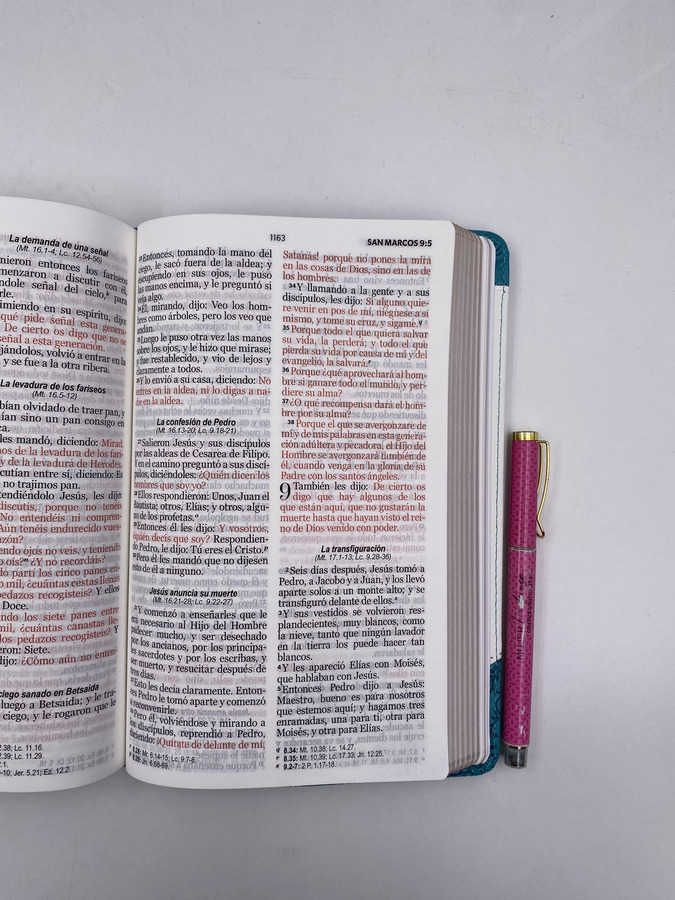 La demanda de una señal
(Mt. 16.1-4; Lc. 12.54-56)
nieron entonces los fariseos
menzaron a discutir con él,
ndole señal del cielo, para
rle.
imiendo en su espíritu, dijo:
qué pide señal esta genera-
De cierto os digo que no se
señal a esta generación.
ejándolos, volvió a entrar en la
y se fue a la otra ribera.
La levadura de los fariseos
(Mt. 16.5-12)
bían olvidado de traer pan, y
ían sino un pan consigo en
ca.
les mandó, diciendo: Mirad,
os de la levadura de los fari-
y de la levadura de Herodes.
cutían entre sí, diciendo: Es
no trajimos pan.
tendiéndolo Jesús, les dijo:
discutís, porque no tenéis
No entendéis ni compren-
Aún tenéis endurecido vues-
azón?
endo ojos no veis, y teniendo
o oís? ¿Y no recordáis?
do partí los cinco panes en-
mil, ¿cuántas cestas llenas
pedazos recogisteis? Y ellos
Doce.
ndo los siete panes entre
mil, ¿cuántas canastas
los pedazos recogisteis? Y
ieron: Siete.
dijo: ¿Cómo aún no enten-
ciego sanado en Betsaida
luego a Betsaida; y le tra-
ciego, y le rogaron que le
2.38; Lc. 11.16.
2.39; Lc. 11.29.
-10; Jer. 5.21; Ez. 12.2.
1163
SAN MARCOS 9:5
Entonces, tomando la mano del
ciego, le sacó fuera de la aldea; y
escupiendo en sus ojos, le puso
las manos encima, y le preguntó si
veía algo.
Él, mirando, dijo: Veo los hom-
bres como árboles, pero los veo que
andan.
Luego le puso otra vez las manos
sobre los ojos, y le hizo que mirase;
y fue restablecido, y vio de lejos y
claramente a todos.
Y lo envió a su casa, diciendo: No
entres en la aldea, ni lo digas a na-
die en la aldea.
La confesión de Pedro
(Mt. 16.13-20; Lc. 9.18-21)
Salieron Jesús y sus discípulos
por las aldeas de Cesarea de Filipo.
Y en el camino preguntó a sus discí-
pulos, diciéndoles: ¿Quién dicen los
hombres que soy yo?
Ellos respondieron: Unos, Juan el
Bautista; otros, Elías; y otros, algu-
no de los profetas.
Entonces él les dijo: Y vosotros,
¿quién decís que soy? Respondien-
do Pedro, le dijo: Tú eres el Cristo.
Pero él les mandó que no dijesen
esto de él a ninguno.
Jesús anuncia su muerte
(Mt. 16.21-28; Lc. 9.22-27)
Y comenzó a enseñarles que le
era necesario al Hijo del Hombre
padecer mucho, y ser desechado
por los ancianos, por los principa-
les sacerdotes y por los escribas, y
ser muerto, y resucitar después de
tres días.
Esto les decía claramente. Enton-
ces Pedro le tomó aparte y comenzó
a reconvenirle.
Pero él, volviéndose y mirando a
los discípulos, reprendió a Pedro,
diciendo: ¡Quítate de delante de mí,
8.28: Mr. 6.14-15; Lc. 9.7-8.
8.29: Jn. 6.68-69.
Satanás! porque no pones la mira
en las cosas de Dios, sino en las de
los hombres.
34 Y llamando a la gente y a sus
discípulos, les dijo: Si alguno quie-
re venir en pos de mí, niéguese a sí
mismo, y tome su cruz, y sígame.
35 Porque todo el que quiera salvar
su vida, la perderá; y todo el que
pierda su vida por causa de mí y del
evangelio, la salvará.
36 Porque ¿qué aprovechará al hom-
bre si ganare todo el mundo, y per-
diere su alma?
37 ¿O qué recompensa dará el hom-
bre por su alma?
38 Porque el que se avergonzare de
mí y de mis palabras en esta genera-
ción adúltera y pecadora, el Hijo del
Hombre se avergonzará también de
él, cuando venga en la gloria de su
Padre con los santos ángeles.
9 También les dijo: De cierto os
digo que hay algunos de los
que están aquí, que no gustarán la
muerte hasta que hayan visto el rei-
no de Dios venido con poder.
La transfiguración
(Mt. 17.1-13; Lc. 9.28-36)
2 Seis días después, Jesús tomó a
Pedro, a Jacobo y a Juan, y los llevó
aparte solos a un monte alto; y se
transfiguró delante de ellos.
3 Y sus vestidos se volvieron res-
plandecientes, muy blancos, como
la nieve, tanto que ningún lavador
en la tierra los puede hacer tan
blancos.
4 Y les apareció Elías con Moisés,
que hablaban con Jesús.
5 Entonces Pedro dijo a Jesús:
Maestro, bueno es para nosotros
que estemos aquí; y hagamos tres
enramadas, una para ti, otra para
Moisés, y otra para Elías.
8.34: Mt. 10.38; Lc. 14.27.
8.35: Mt. 10.39; Lc. 17.33; Jn. 12.25.
9.2-7: 2 P. 1.17-18.